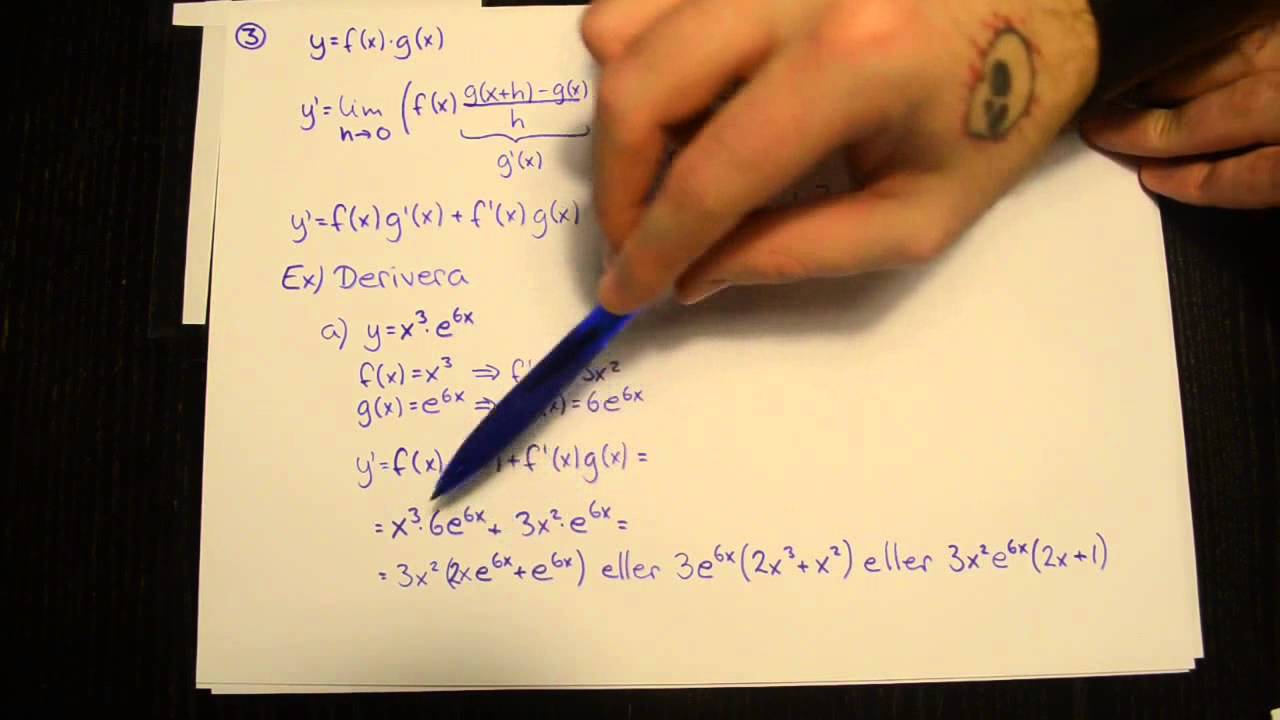 ③ y=f(x)·g(x)
y'=lim h→0 (f(x) g(x+h)-g(x) / h
g'(x)
y'=f(x)g'(x)+f'(x)g(x)
Ex) Derivera
a) y=x³·e^6x
f(x)=x³ ⇒ f' 3x²
g(x)=e^6x ⇒ )=6e^6x
y'=f(x) +f'(x)g(x)=
=x³·6e^6x+3x²·e^6x=
=3x²(2xe^6x+e^6x) eller 3e^6x(2x³+x²) eller 3x²e^6x(2x+1)